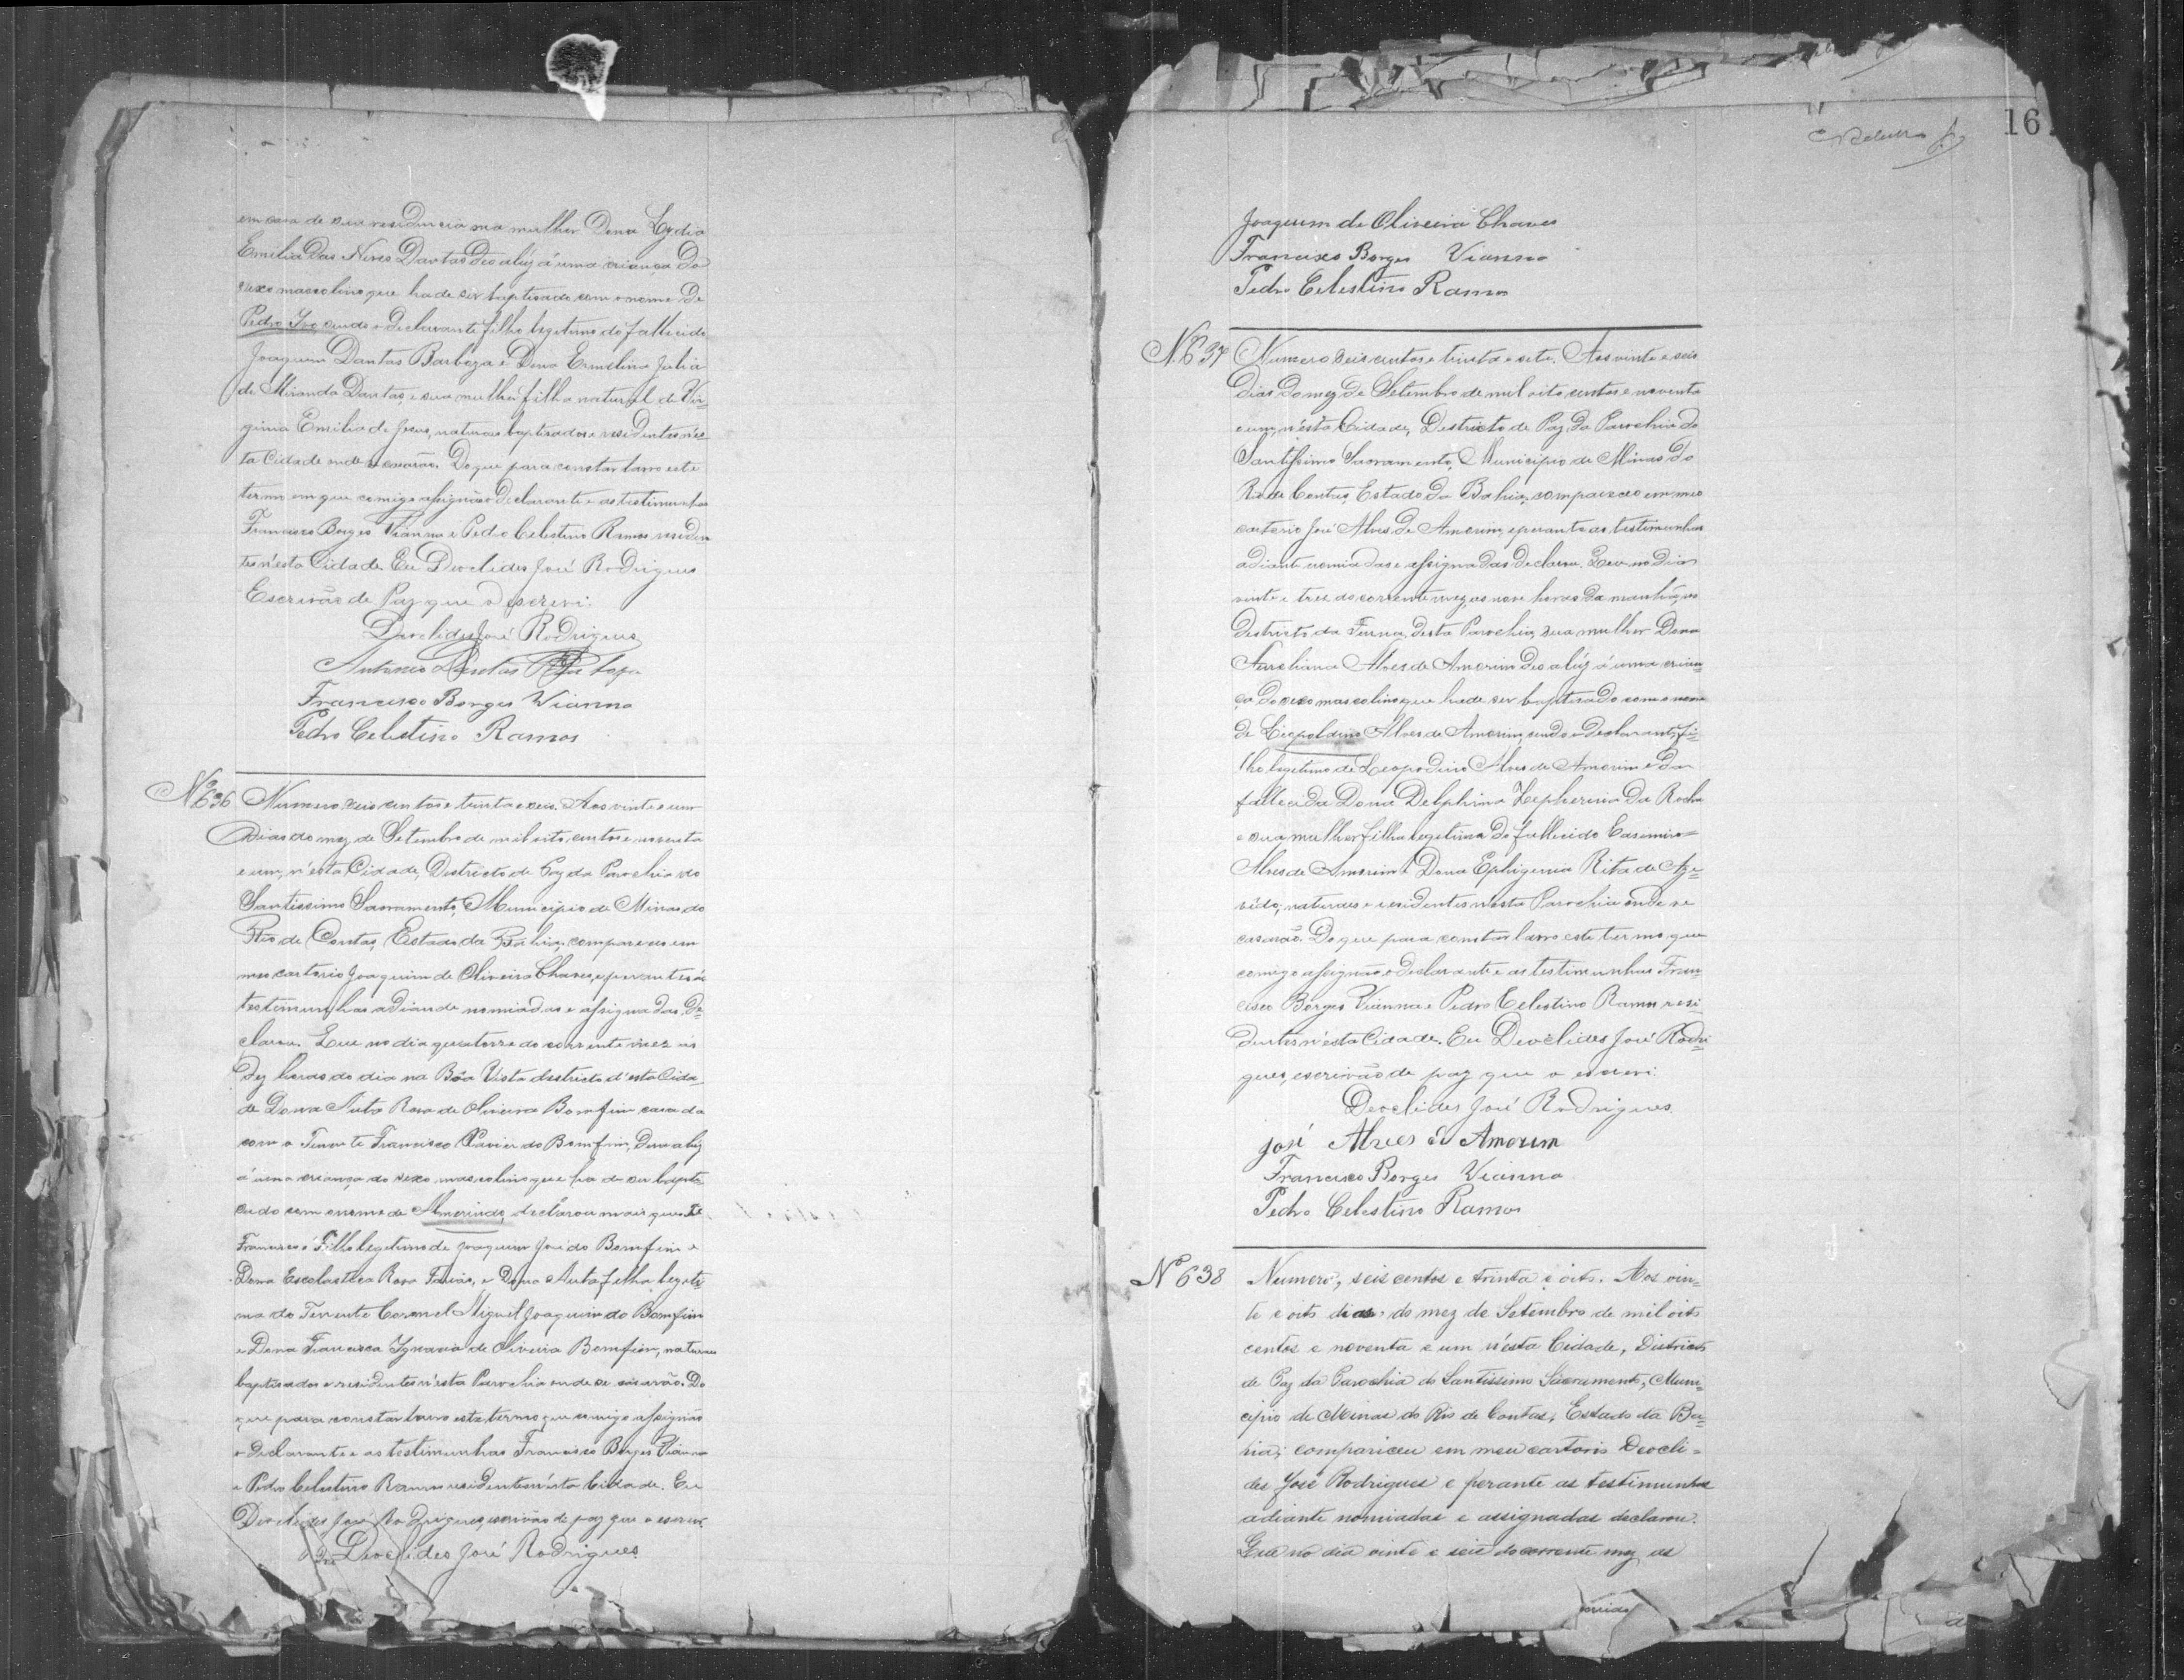 em casa de sua residencia na mulher Dona Lydia
Emilia das Neves Dantas deo a lúz á uma criança do
sexo mascolino que hade ser baptisado com o nome de
Pedro Ivo sendo o declarante filho legitimo do fallecido
Joaquim Dantas Barboza e Dona Ermelina Julia
de Miranda Dantas, e sua mulher filha natural de Vir=
ginia Emilia de Jesus, naturaes baptisados e residentes n'es
ta Cidade onde se casarão. Do que para constar lavro este
termo em que comigo assignão o declarante e as testimunhas
Francisco Borges Vianna e Pedro Celestino Ramos residen
tes n'esta Cidade. Eu Deoclides José Rodrigues
Escrivão de Paz que o escrevi.
Deoclides José Rodrigues
Antonio Dantas
Francisco Borges Vianna
Pedro Celestino Ramos
Nº 636 Numero seis centos e trinta e seis. Aos vinte e um
dias do mez de Setembro de mil oito centos e noventa
e um, n'esta Cidade, Districto de Paz da Parochia do
Santissimo Sacramento, Municipio de Minas do
Rio de Contas, Estado da Bahia, compareceo em
meo cartorio Joaquim de Oliveira Chaves, e perante as
testemunhas adiande nomiadas e assignadas, de=
clarou. Que no dia quatorze do corrente mez as
dez horas do dia na Bôa Vista destricto d'esta Cida
de Dona Auta Rosa de Oliveira Bomfim casada
com o Tenente Francisco Xavier do Bomfim, deu a luz
á uma criança do sexo mascolino que ha de ser baptis
cado com o nome de Amerindo, declarou mais que
Francisco é Filho legitimo de Joaquim José do Bomfim e
Dona Escolastica Rosa e Dona Auta filha legiti
ma do Tenente Coronel Miguel Joaquim do Bomfim
e Dona Francisca Ignacia de Oliveira Bomfim, naturaes
baptisados e residentes n'esta Parochia onde se casarão. Do
que para constar lavro este termo que comigo assignão
o declarante e as testimunhas Francisco Borges Vianna
e Pedro Celestino Ramos residentes n'esta Cidade. Eu
Deoclides José Rodrigues, escrivão de paz que o escrevi.
Deoclides José Rodrigues
16
Joaquim de Oliveira Chaves
Francisco Borges Vianna
Pedro Celestino Ramos
Nº 637 Numero seis centos e trinta e sete. Aos vinte e seis
dias do mez de Setembro de mil oito centos e noventa
e um, n'esta Cidade, Destricto de Paz da Parochia do
Santissimo Sacramento, Municipio de Minas do
Rio de Contas, Estado da Bahia, compareceo em meo
cartorio José Alves de Amorim, e perante as testimunhas
adiante nomiadas e assignadas declarou. Que no dia
vinte e trez do corrente mez, as nove horas da manhã, no
Destricto da Furna, desta Parochia, sua mulher Dona
Aureliana Alves de Amorim deo a lúz á uma crian=
ça do sexo mascolino que hade ser baptisado com o nome
de Liopoldino Alves de Amorim, sendo o declarante fi=
lho legitimo de Leopodino Alves de Amorim e da
fallecida Dona Delphina Zepherina da Rocha
e sua mulher filha legitima do fallecido Casemiro=
Alves de Amorim e Dona Ephigenia Rita de Aze=
vêdo; naturaes e residentes nésta Parochia onde se
casarão. Do que para constar lavro este termo que
comigo assignão o declarante e as testimunhas Fran=
cisco Borges Vianna e Pedro Celestino Ramos resi=
dentes n'ésta Cidade. Eu Deoclides José Rodri=
gues, escrivão de paz que o escrevi.
Deoclides José Rodrigues.
josé Alves de Amorim
Francisco Borges Vianna
Pedro Celestino Ramos
Nº 638 Numero, seis centos e trinta e oito. Aos vin=
te e oito dias do mez de Setembro de mil oito
centos e noventa e um n'ésta Cidade, Districto
de Paz da Parochia do Santissimo Sacramento, Muni=
cipio de Minas do Rio de Contas, Estado da Ba=
hia; compariceu em meu cartorio Deocli=
des José Rodrigues e perante as testimunhas
adiante nomiadas e assignadas declarou.
Que no dia vinte e seis do corrente mez, as